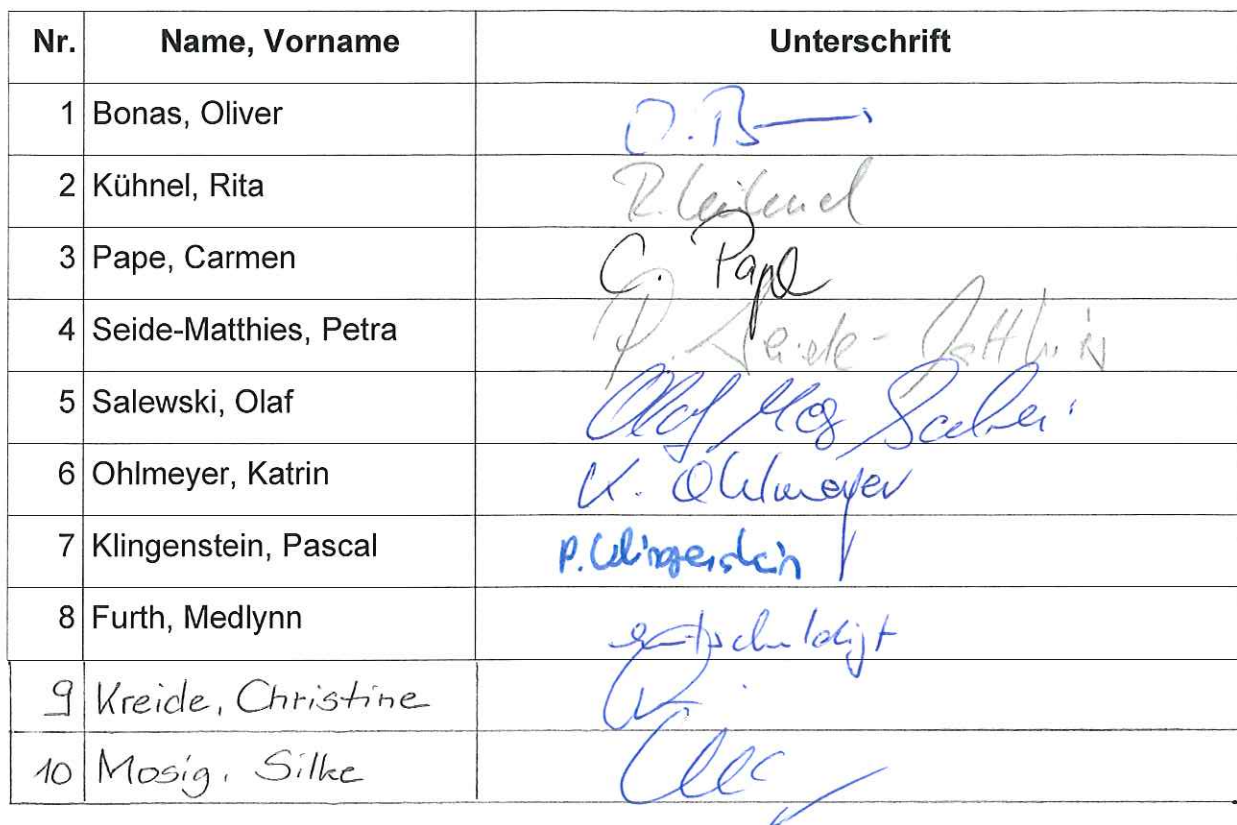 Nr. Name, Vorname Unterschrift
1 Bonas, Oliver O. B
2 Kühnel, Rita R. Kühnel
3 Pape, Carmen C. Pape
4 Seide-Matthies, Petra P. Seide-Matthies
5 Salewski, Olaf Olaf
6 Ohlmeyer, Katrin K. Ohlmeyer
7 Klingenstein, Pascal P. Klingenstein
8 Furth, Medlynn entschuldigt
9 Kreide, Christine
10 Mosig, Silke